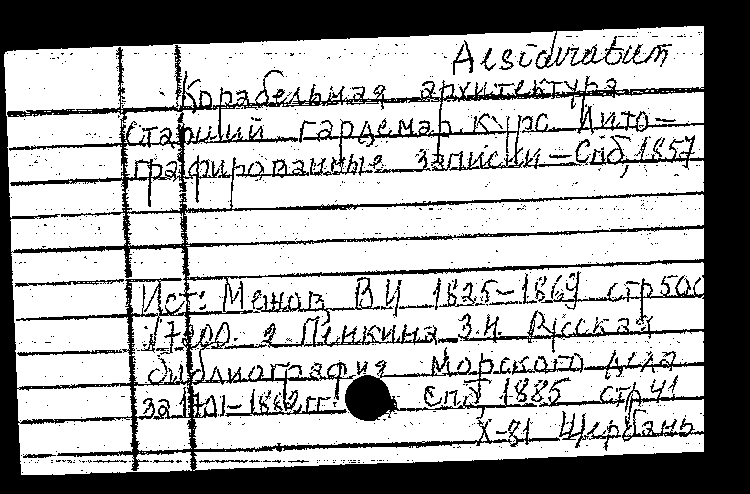 Desideratum
Корабельная архитектура
Старший гардемар. курс. Лито-
графированные записки – Спб, 1857
Ист: Межов В.И 1825–1869 стр 500
№7200. 2 Пенкина З.И. Русская
библиография морского дела
за 1701–1882 гг. Спб, 1885 стр. 41
X-81 Щербань